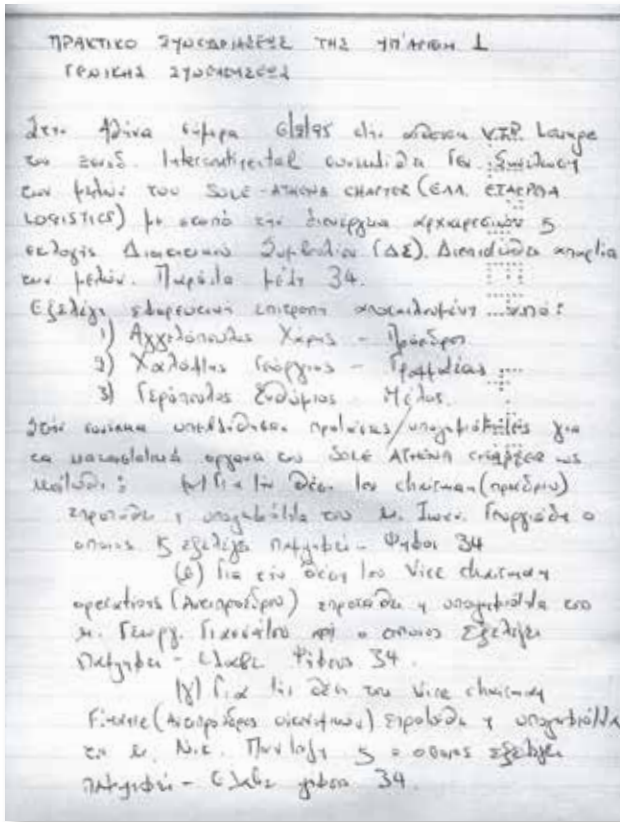 ΠΡΑΚΤΙΚΟ ΣΥΝΕΔΡΙΑΣΕΩΣ ΤΗΣ ΥΠ'ΑΡΙΘΜ 1
ΓΕΝΙΚΗΣ ΣΥΝΕΛΕΥΣΕΩΣ
Στην Αθήνα σήμερα 6/9/95 στην αίθουσα V.I.P. Lounge
του ξενοδ. Intercontinental Γεν. Συνέλευση
των μελών του SOLE-ATHENS CHAPTER (ΕΛΛ. ΕΤΑΙΡΕΙΑ
LOGISTICS) με σκοπό την διενέργεια αρχαιρεσιών
εκλογής Διοικητικού Συμβουλίου (ΔΣ). Διεπιστώθη απαρτία
των μελών. Παρόντα μέλη 34.
Εξελέγη εφορευτική επιτροπή αποτελουμένη από:
1) Αγγελόπουλος Χάρης - Πρόεδρος
2) Γεώργιος - Γραμματέας
3) Γερόπουλος Ευθύμιος - Μέλος
Στην συνέχεια υπεβλήθησαν προτάσεις/υποψηφιότητες για
τα όργανα του SOLE ως
Για την θέση του chairman (προέδρου)
επροτάθη η υποψηφιότητα του κ. Ιωαν. Γεωργιάδη ο
οποίος εξελέγη παμψηφεί - Ψήφοι 34
(β) Για την θέση του Vice chairman
operations (Αντιπροέδρου) επροτάθη η υποψηφιότητα του
κ. Γεωργ. ο οποίος εξελέγη
παμψηφεί - έλαβε ψήφους 34.
(γ) Για την θέση του Vice chairman
Finance (Αντιπρόεδρος οικονομικών) επροτάθη η υποψηφιότητα
του κ. Νικ. ο οποίος εξελέγη
παμψηφεί - έλαβε ψήφους 34.